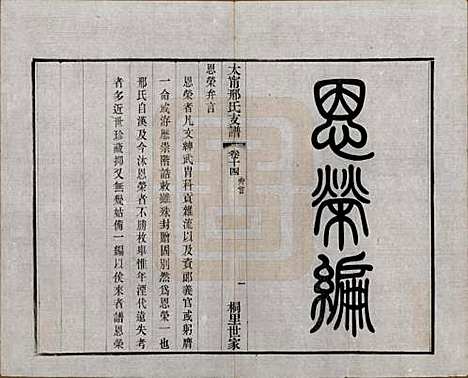 恩榮編
太甯邢氏支譜
卷十四
弁言
一
桐里世家
恩榮弁言
恩榮者凡文紳武胄科貢雜流以及賁郎義官或躬膺
一命或洊歷崇階誥敕雖殊封贈固別然為恩榮一也
邢氏自漢及今沐恩榮者不勝枚舉惟年湮代遠失考
者多近世珍藏抑又無幾姑備一編以俟來者譜恩榮